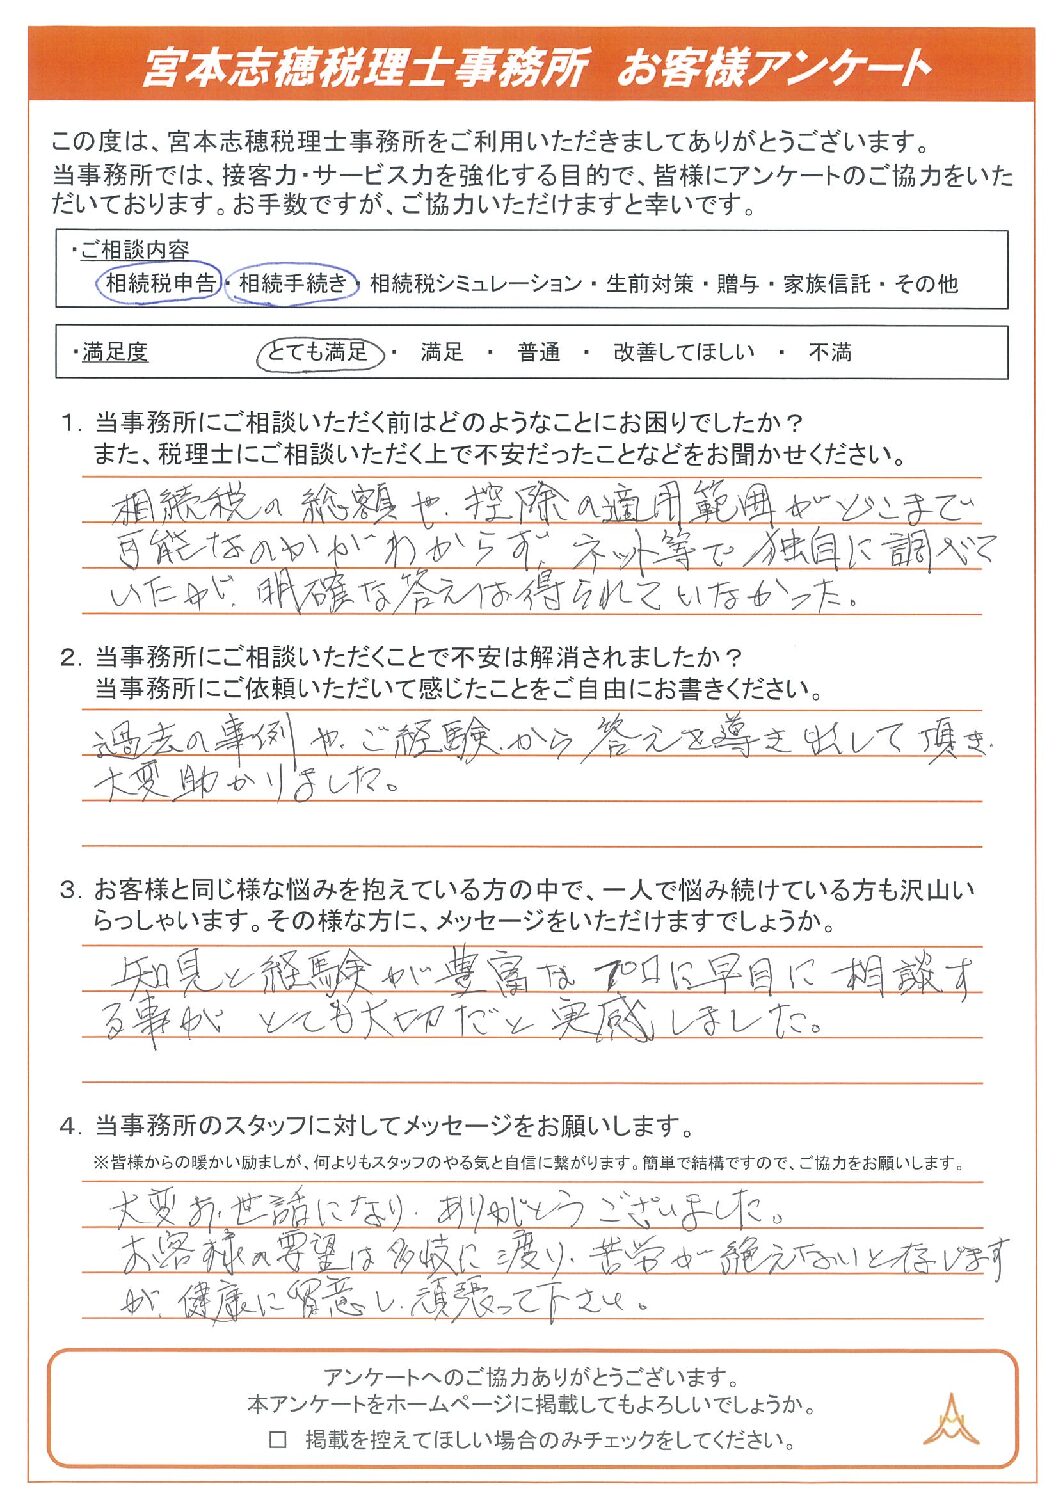 宮本志穂税理士事務所 お客様アンケート
この度は、宮本志穂税理士事務所をご利用いただきましてありがとうございます。
当事務所では、接客力・サービス力を強化する目的で、皆様にアンケートのご協力をいた
だいております。お手数ですが、ご協力いただけますと幸いです。
・ご相談内容
相続税申告・相続手続き・相続税シミュレーション・生前対策・贈与・家族信託・その他
・満足度 とても満足・ 満足 ・ 普通 ・ 改善してほしい ・ 不満
1. 当事務所にご相談いただく前はどのようなことにお困りでしたか？
また、税理士にご相談いただく上で不安だったことなどをお聞かせください。
相続税の総額や、控除の適用範囲がどこまで
可能なのかがわからず、ネット等で独自に調べて
いたが、明確な答えは得られていなかった。
2. 当事務所にご相談いただくことで不安は解消されましたか？
当事務所にご依頼いただいて感じたことをご自由にお書きください。
過去の事例や、ご経験から答えを導き出して頂き、
大変助かりました。
3. お客様と同じ様な悩みを抱えている方の中で、一人で悩み続けている方も沢山い
らっしゃいます。その様な方に、メッセージをいただけますでしょうか。
知見と経験が豊富なプロに早目に相談す
る事が とても大切だと実感しました。
4. 当事務所のスタッフに対してメッセージをお願いします。
※皆様からの暖かい励ましが、何よりもスタッフのやる気と自信に繋がります。簡単で結構ですので、ご協力をお願いします。
大変お世話になり、ありがとうございました。
お客様の要望は多岐に渡り、苦労が絶えないと存じます
が、健康に留意し、頑張って下さい。
アンケートへのご協力ありがとうございます。
本アンケートをホームページに掲載してもよろしいでしょうか。
□ 掲載を控えてほしい場合のみチェックをしてください。